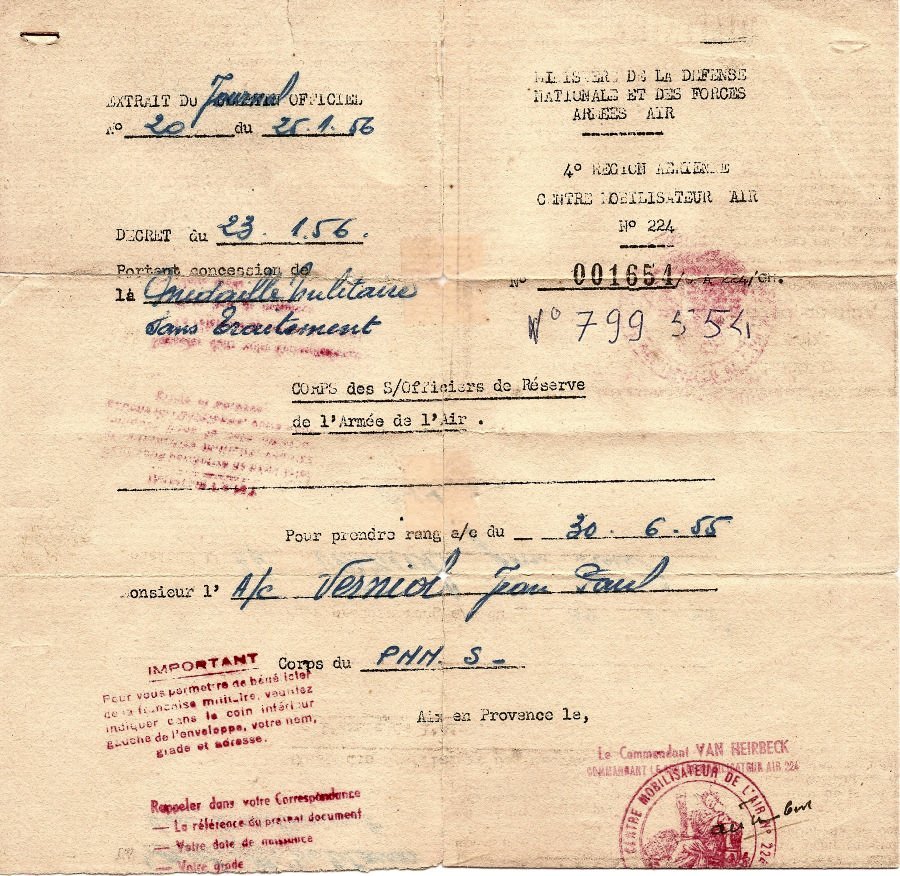 EXTRAIT DU Journal OFFICIEL
N° 20 du 25.1.56
MINISTERE DE LA DEFENSE
NATIONALE ET DES FORCES
ARMEES AIR
4° REGION AERIENNE
CENTRE MOBILISATEUR AIR
N° 224
DECRET du 23.1.56.
Portant concession de
la Médaille Militaire
sans traitement
N° 001654
N° 799 554
CORPS des S/Officiers de Réserve
de l'Armée de l'Air.
Pour prendre rang a/c du 30.6.55
Monsieur l' A/c Verniol Jean Paul
Corps du PNN. S
Aix en Provence le,
IMPORTANT
Pour vous permettre de bénéficier
de la franchise militaire, veuillez
indiquer dans le coin inférieur
gauche de l'enveloppe, votre nom,
grade et adresse.
Le Commandant VAN HEIRBECK
COMMANDANT LE CENTRE MOBILISATEUR AIR 224
CENTRE MOBILISATEUR DE L'AIR N° 224
Rappeler dans votre Correspondance
— La référence du présent document
— Votre date de naissance
— Votre grade